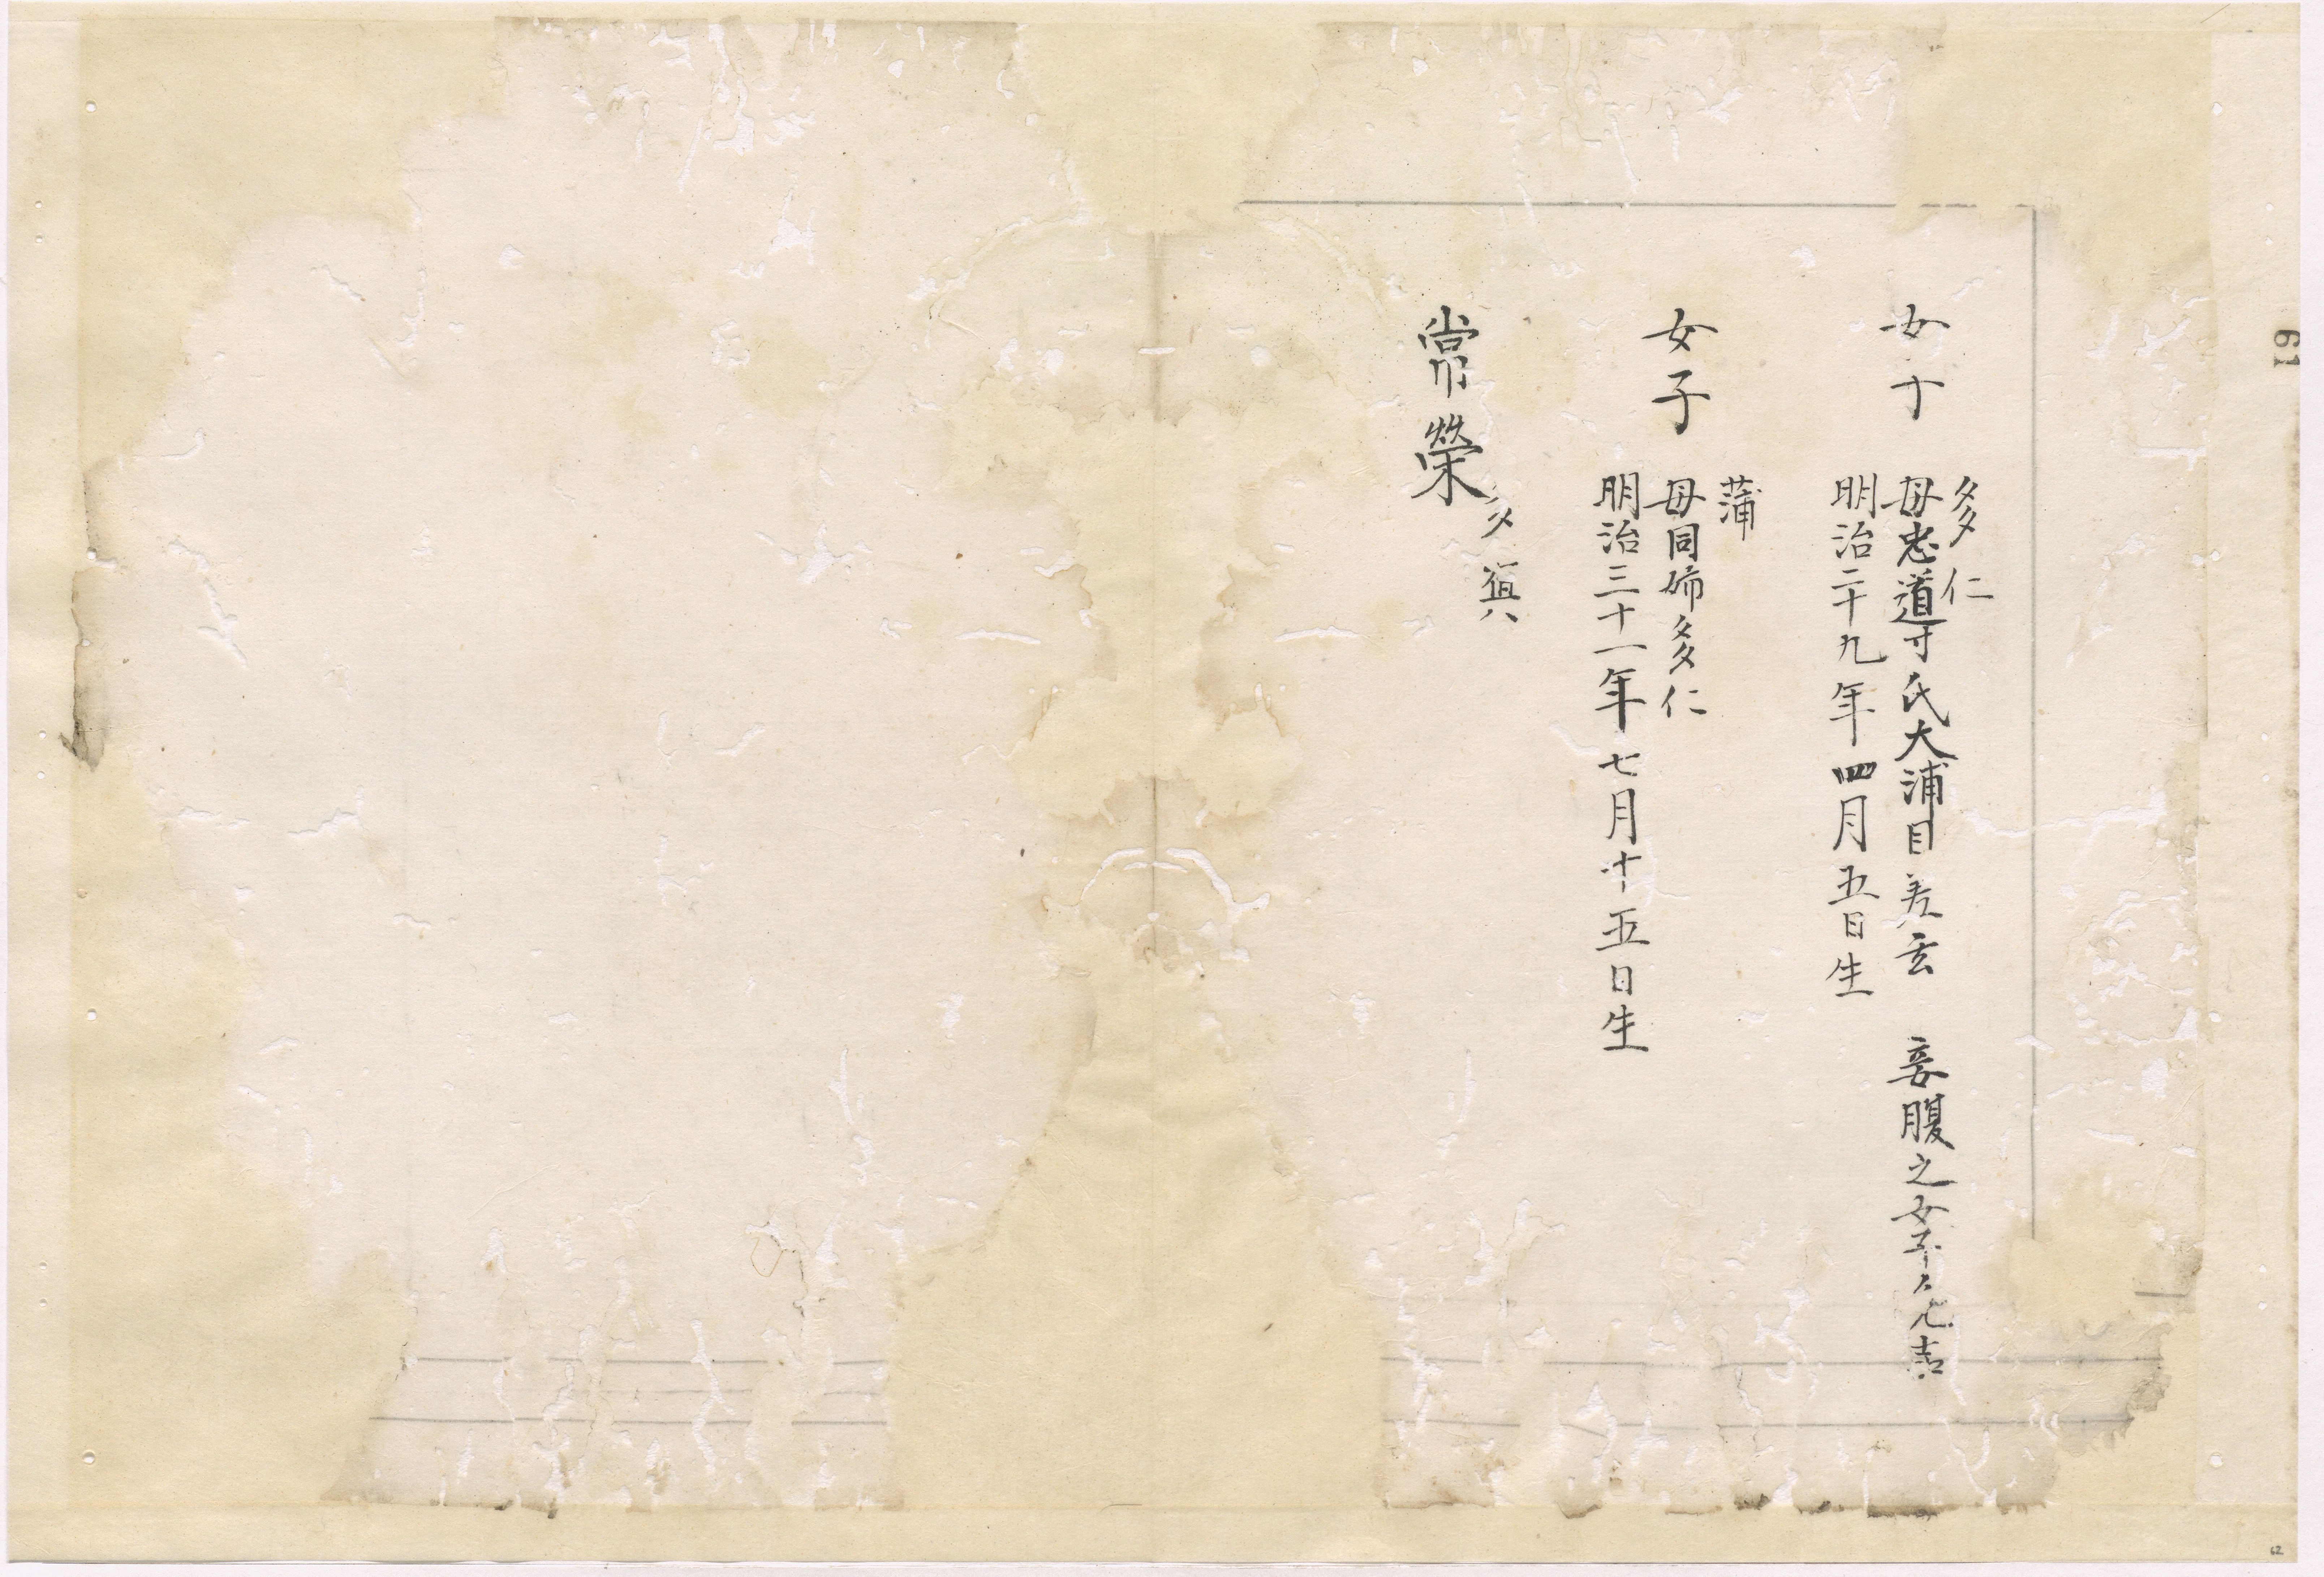 女子
多仁
母忠道寸氏大浦目差玄 妾腹之女子
明治二十九年四月五日生
女子
蒲
母同姉多仁
明治三十一年七月十五日生
常榮
61
62